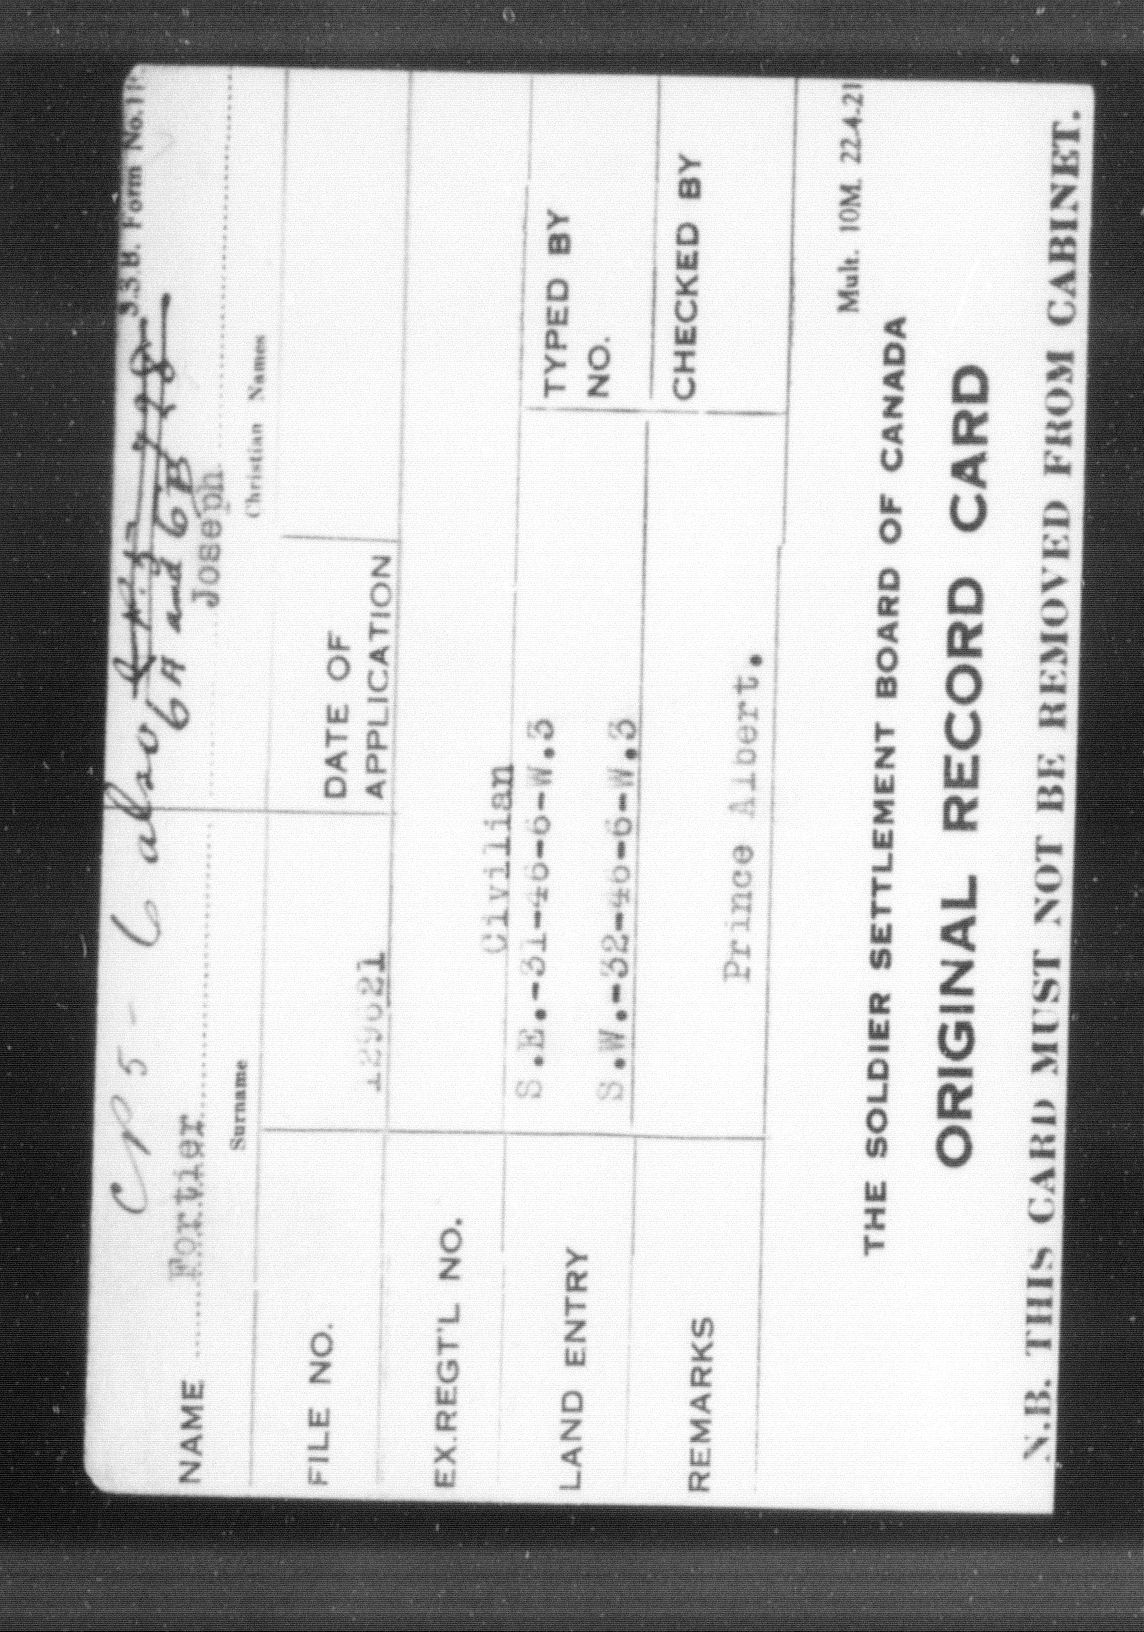 S.S.B. Form No. 1
CP 5 - 6 also
6A and 6B
NAME Fortier Joseph
Surname Christian Names
FILE NO. 129621 DATE OF
APPLICATION
EX.REGT'L NO. Civilian
LAND ENTRY S.E.-31-46-6-W.3 TYPED BY
S.W.-32-46-6-W.3 NO.
REMARKS Prince Albert. CHECKED BY
Mult. 10M. 22-4-21
THE SOLDIER SETTLEMENT BOARD OF CANADA
ORIGINAL RECORD CARD
N.B. THIS CARD MUST NOT BE REMOVED FROM CABINET.